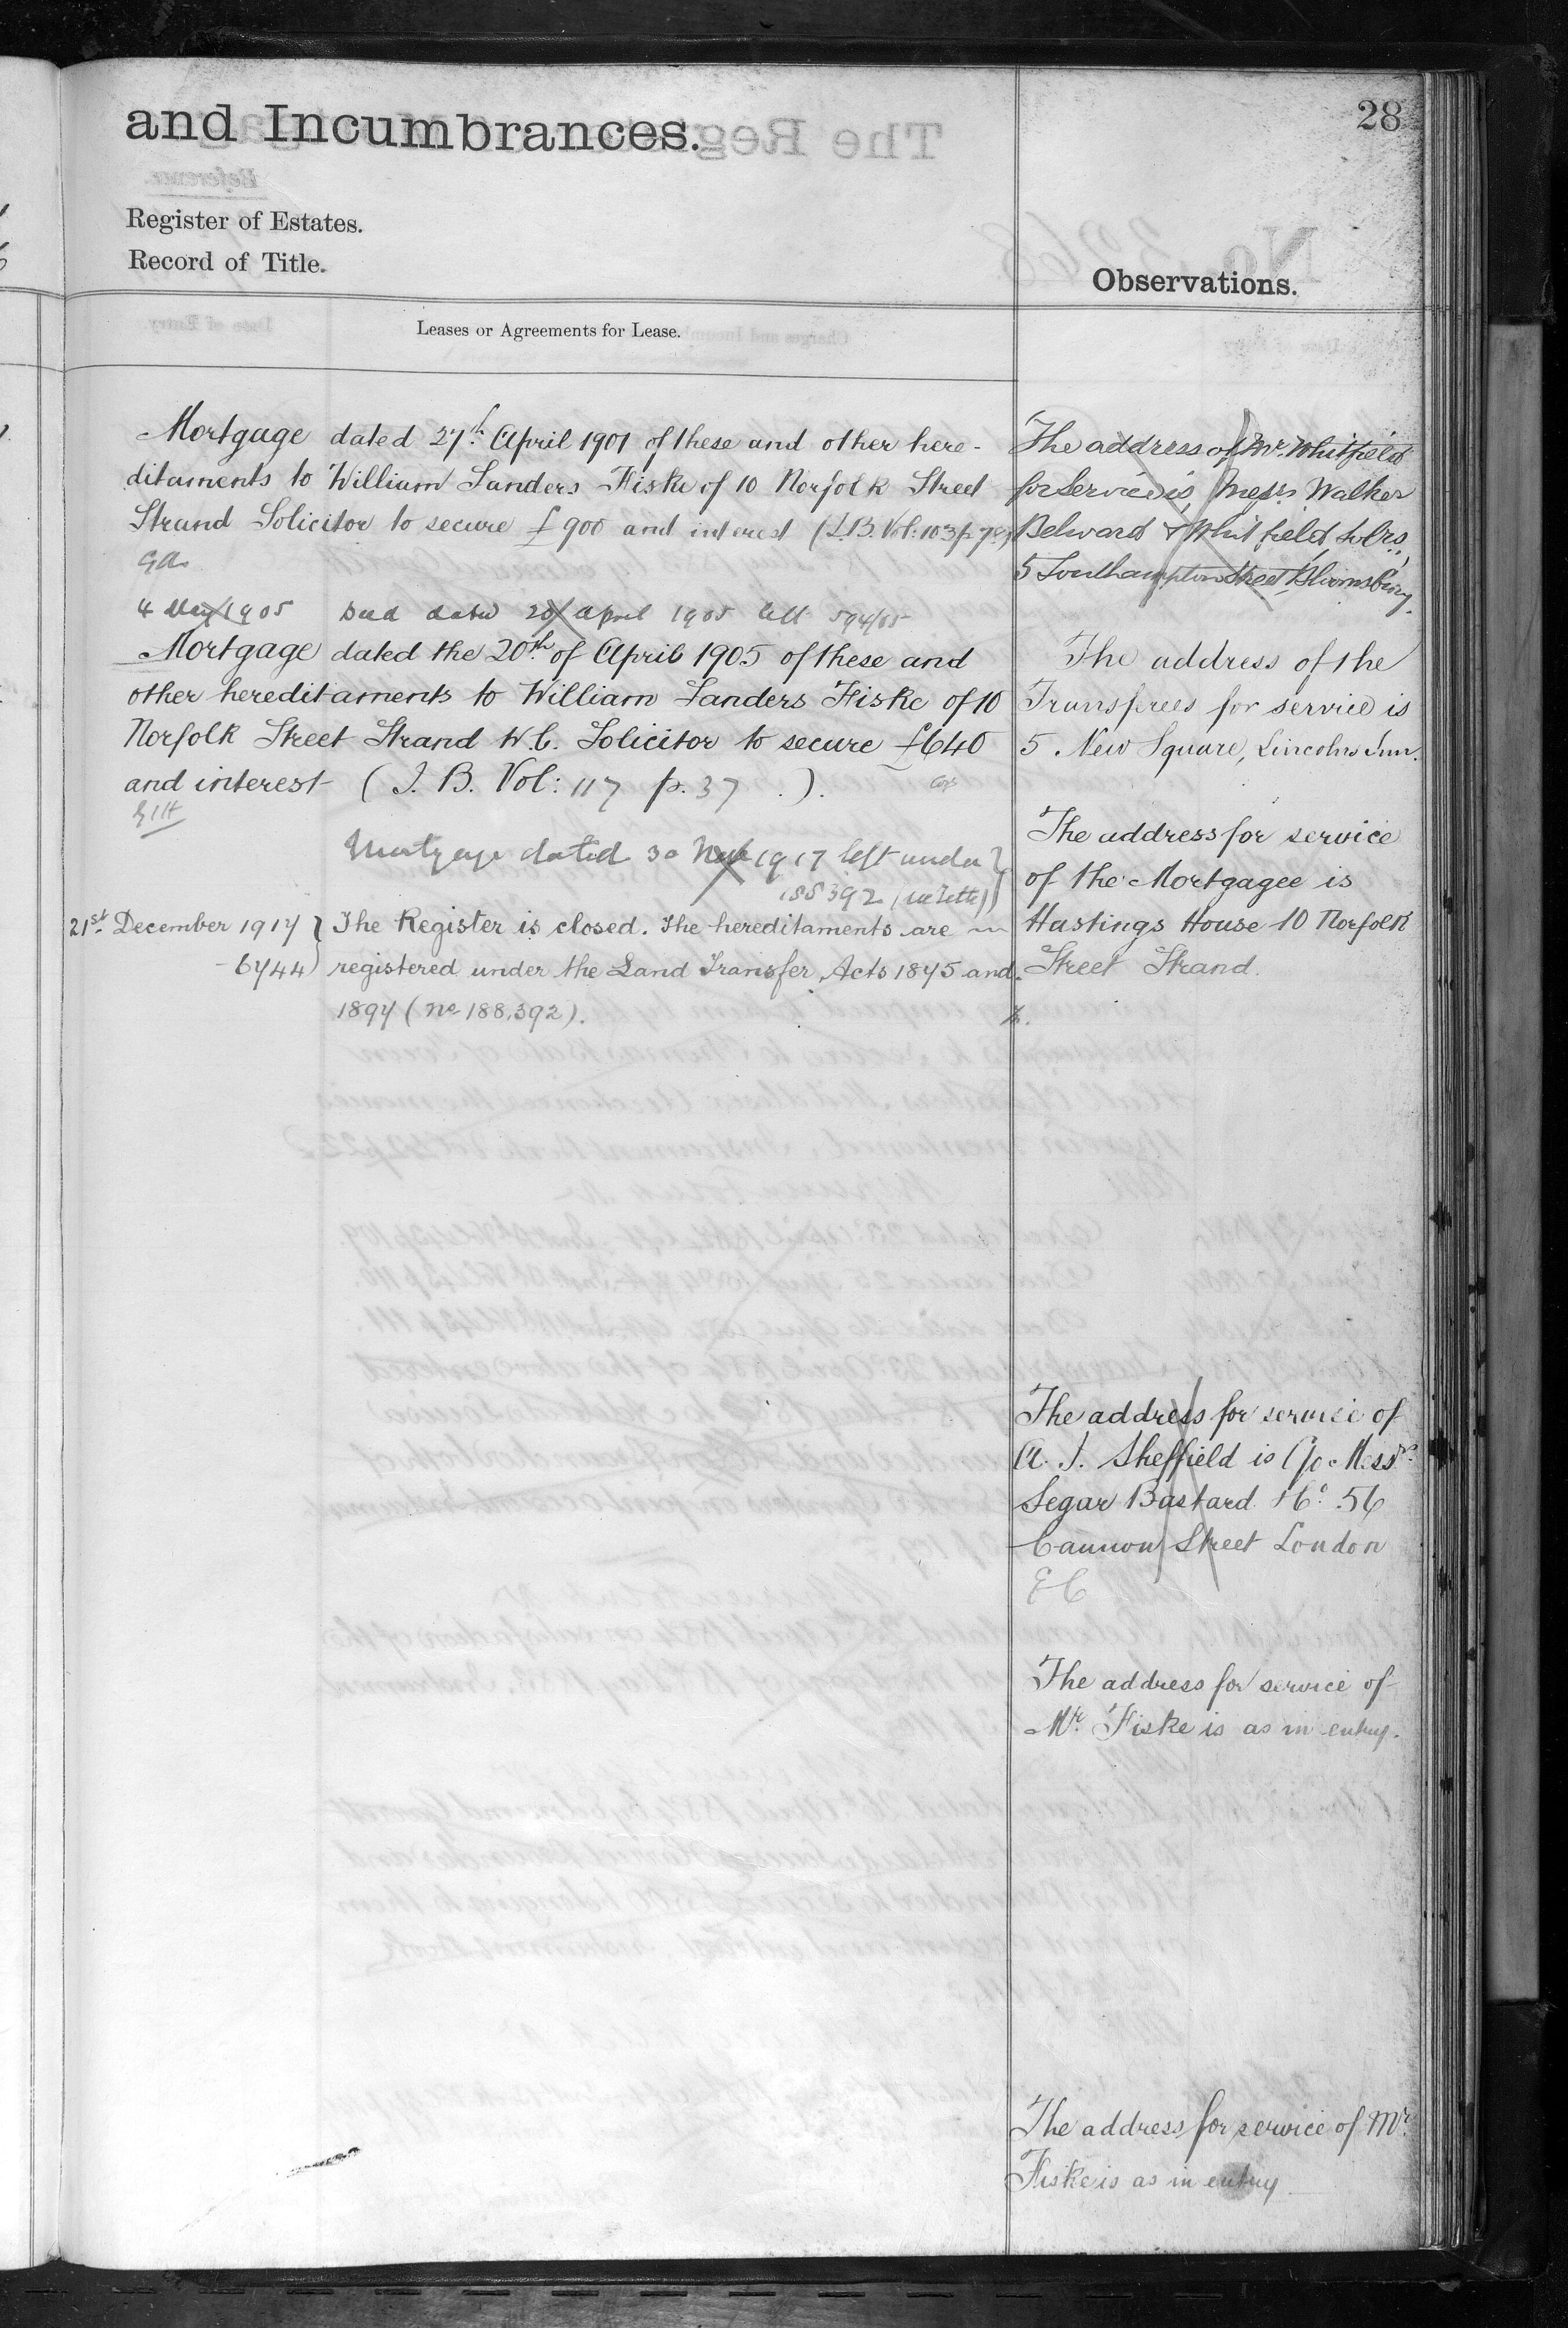 28
and Incumbrances.
Register of Estates.
Record of Title.
Observations.
Leases or Agreements for Lease.
Mortgage dated 27th April 1901 of these and other here-
ditaments to William Sanders Fiske of 10 Norfolk Street
Strand Solicitor to secure £900 and interest (I.B. Vol: 103 p 78)
4 May 1905 Deed dated 20 April 1905 left 594/05
Mortgage dated the 20th of April 1905 of these and
other hereditaments to William Sanders Fiske of 10
Norfolk Street Strand W.C. Solicitor to secure £640
and interest (I. B. Vol: 117 p. 37 ).
Mortgage dated 30 1917 left under
188392
21st December 1917 The Register is closed. The hereditaments are
6744 registered under the Land Transfer Acts 1875 and
1897 (No 188,392).
The address of Mr. Whitfield
for service is Messrs Walker
Belward & Whitfield Solrs,
5 Southampton Street, Bloomsbury.
The address of the
Transferees for service is
5. New Square, Lincolns Inn.
The address for service
of the Mortgagee is
Hastings House 10 Norfolk
Street Strand.
The address for service of
A. J. Sheffield is C/o Messrs
Segar Bastard & Co. 56
Cannon Street London
E C
The address for service of
Mr. Fiske is as in entry.
The address for service of Mr.
Fiske is as in entry